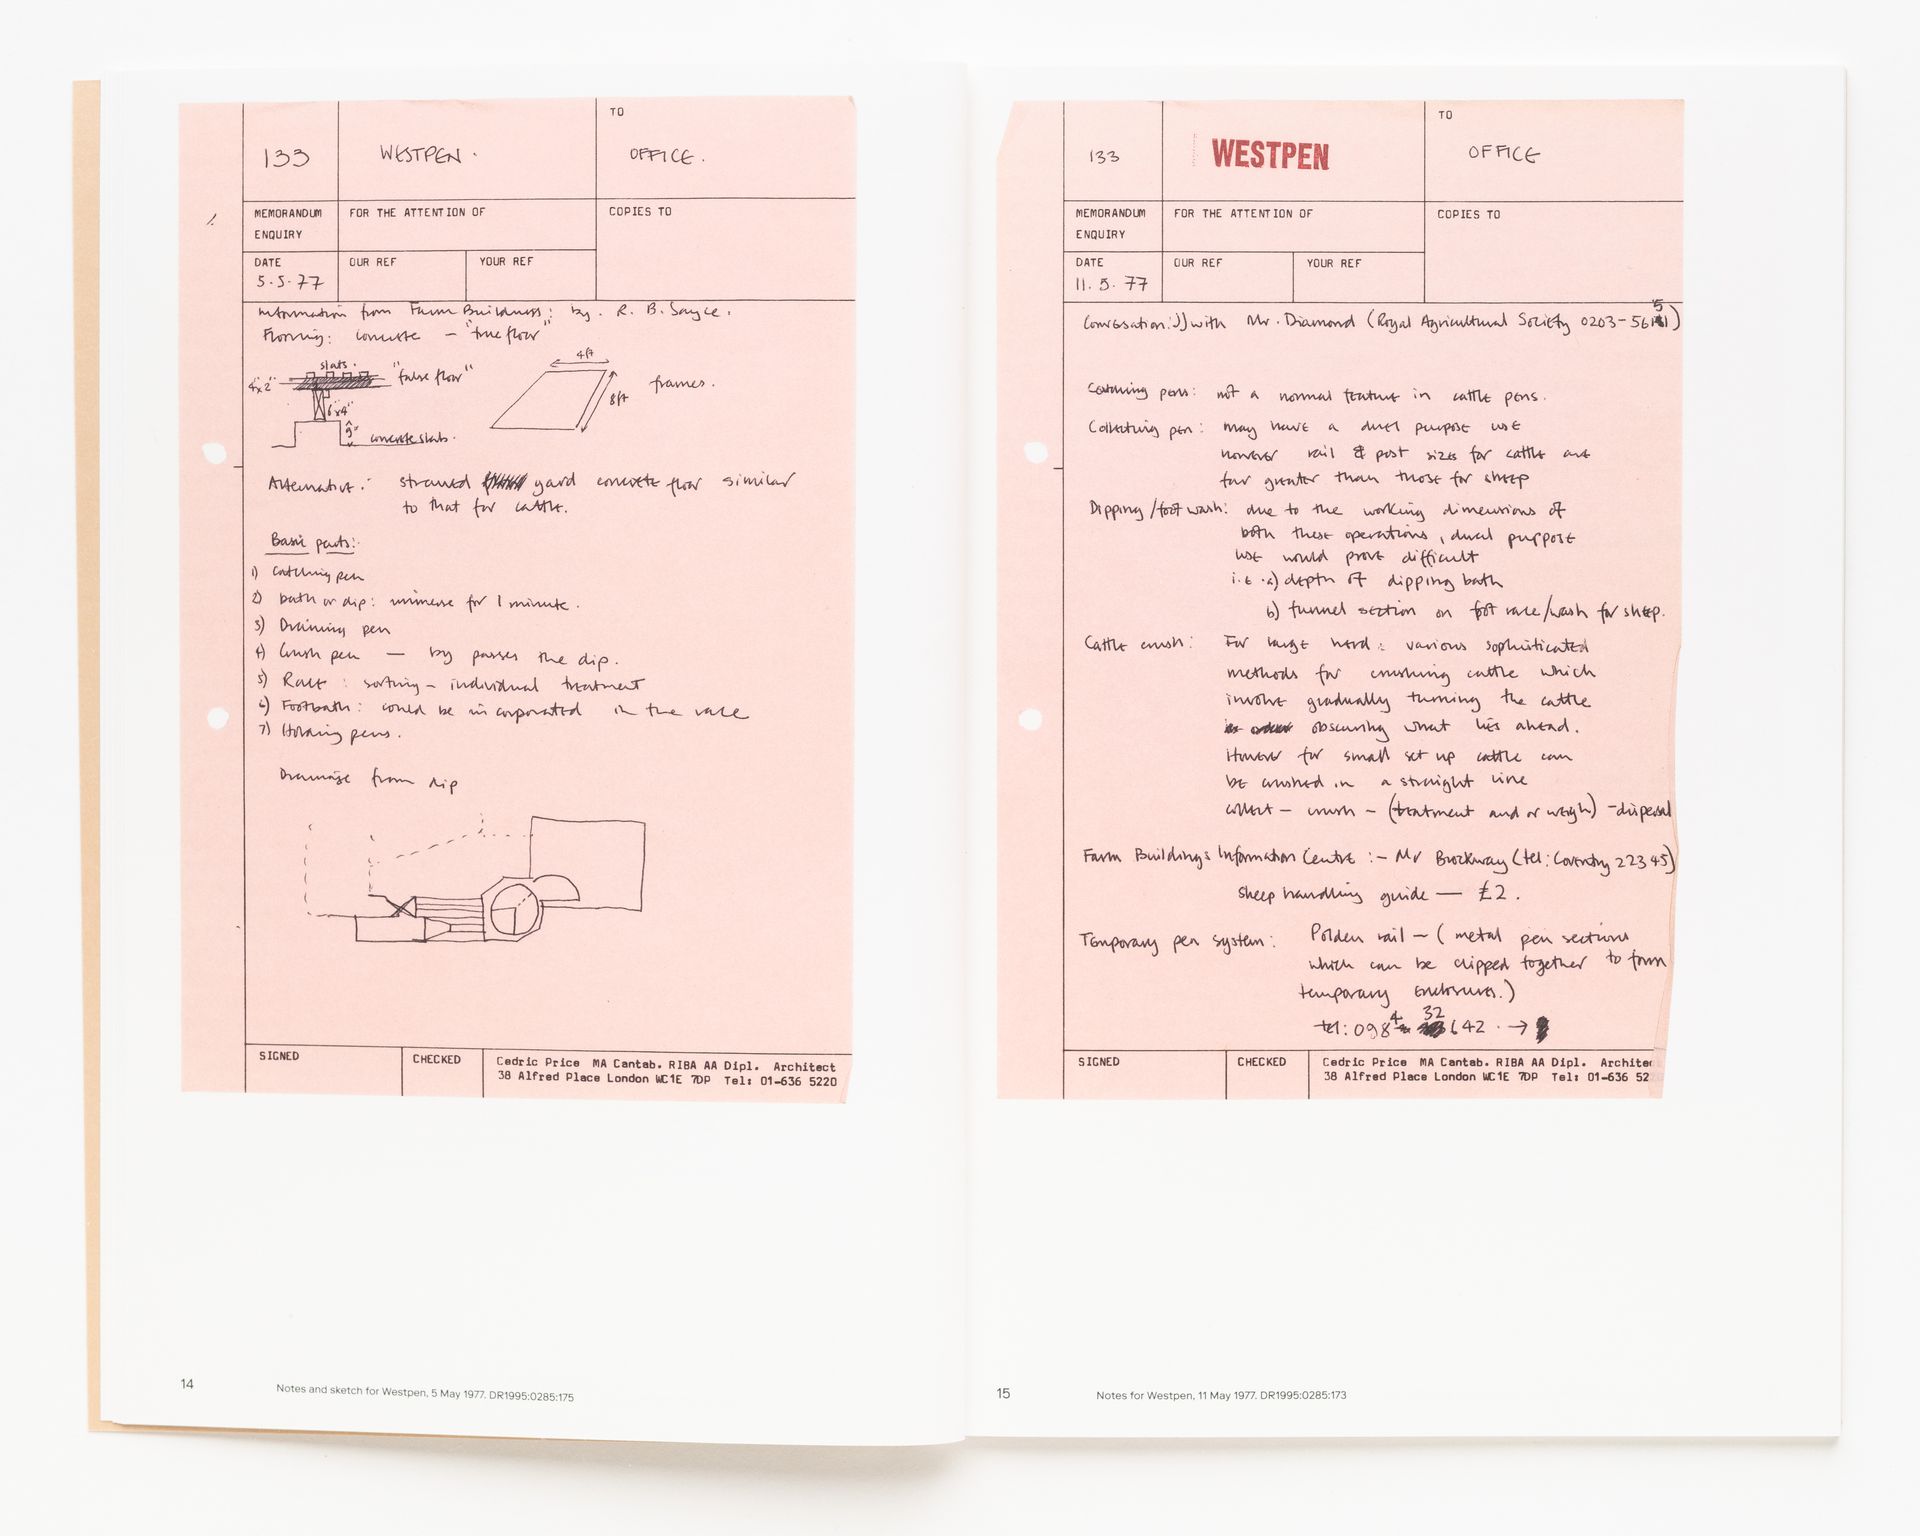 133
WESTPEN.
TO
OFFICE.
MEMORANDUM
ENQUIRY
FOR THE ATTENTION OF
COPIES TO
DATE
5.5.77
OUR REF
YOUR REF
Information from Farm Buildings: by. R. B. Sayce.
Flooring: concrete — "true floor"
slats.
4"x2"
"false floor"
6"x4"
9"
concrete slab.
4ft
8ft
frames.
Alternative: strawed yard concrete floor similar
to that for cattle.
Basic parts:
1) Catching pen
2) bath or dip: immerse for 1 minute.
3) Draining pen
4) Crush pen — by passes the dip.
5) Race: sorting – individual treatment
6) Footbath: could be incorporated in the race
7) Holding pens.
Drainage from dip
SIGNED
CHECKED
Cedric Price MA Cantab. RIBA AA Dipl. Architect
38 Alfred Place London WC1E 7DP Tel: 01-636 5220
14
Notes and sketch for Westpen, 5 May 1977. DR1995:0285:175
133
WESTPEN
TO
OFFICE
MEMORANDUM
ENQUIRY
FOR THE ATTENTION OF
COPIES TO
DATE
11.5.77
OUR REF
YOUR REF
Conversation: JJ with Mr. Diamond (Royal Agricultural Society
Catching pens: not a normal feature in cattle pens.
Collecting pen: may have a duel purpose use
however rail & post sizes for cattle are
far greater than those for sheep
Dipping/foot wash: due to the working dimensions of
both these operations, dual purpose
use would prove difficult
i.e. a) depth of dipping bath
b) funnel section on foot race/wash for sheep.
Cattle crush: For large herd: various sophisticated
methods for crushing cattle which
involve gradually turning the cattle
obscuring what lies ahead.
However for small set up cattle can
be crushed in a straight line
collect – crush – (treatment and or weigh) – dispersal
Farm Buildings Information Centre :- Mr Brockway (tel: Coventry 22345)
sheep handling guide — £2.
Temporary pen system: Polden rail — (metal pen sections
which can be clipped together to form
temporary enclosures.)
tel: 0984 32 642 . →
SIGNED
CHECKED
Cedric Price MA Cantab. RIBA AA Dipl. Architec
38 Alfred Place London WC1E 7DP Tel: 01-636 52
15
Notes for Westpen, 11 May 1977. DR1995:0285:173